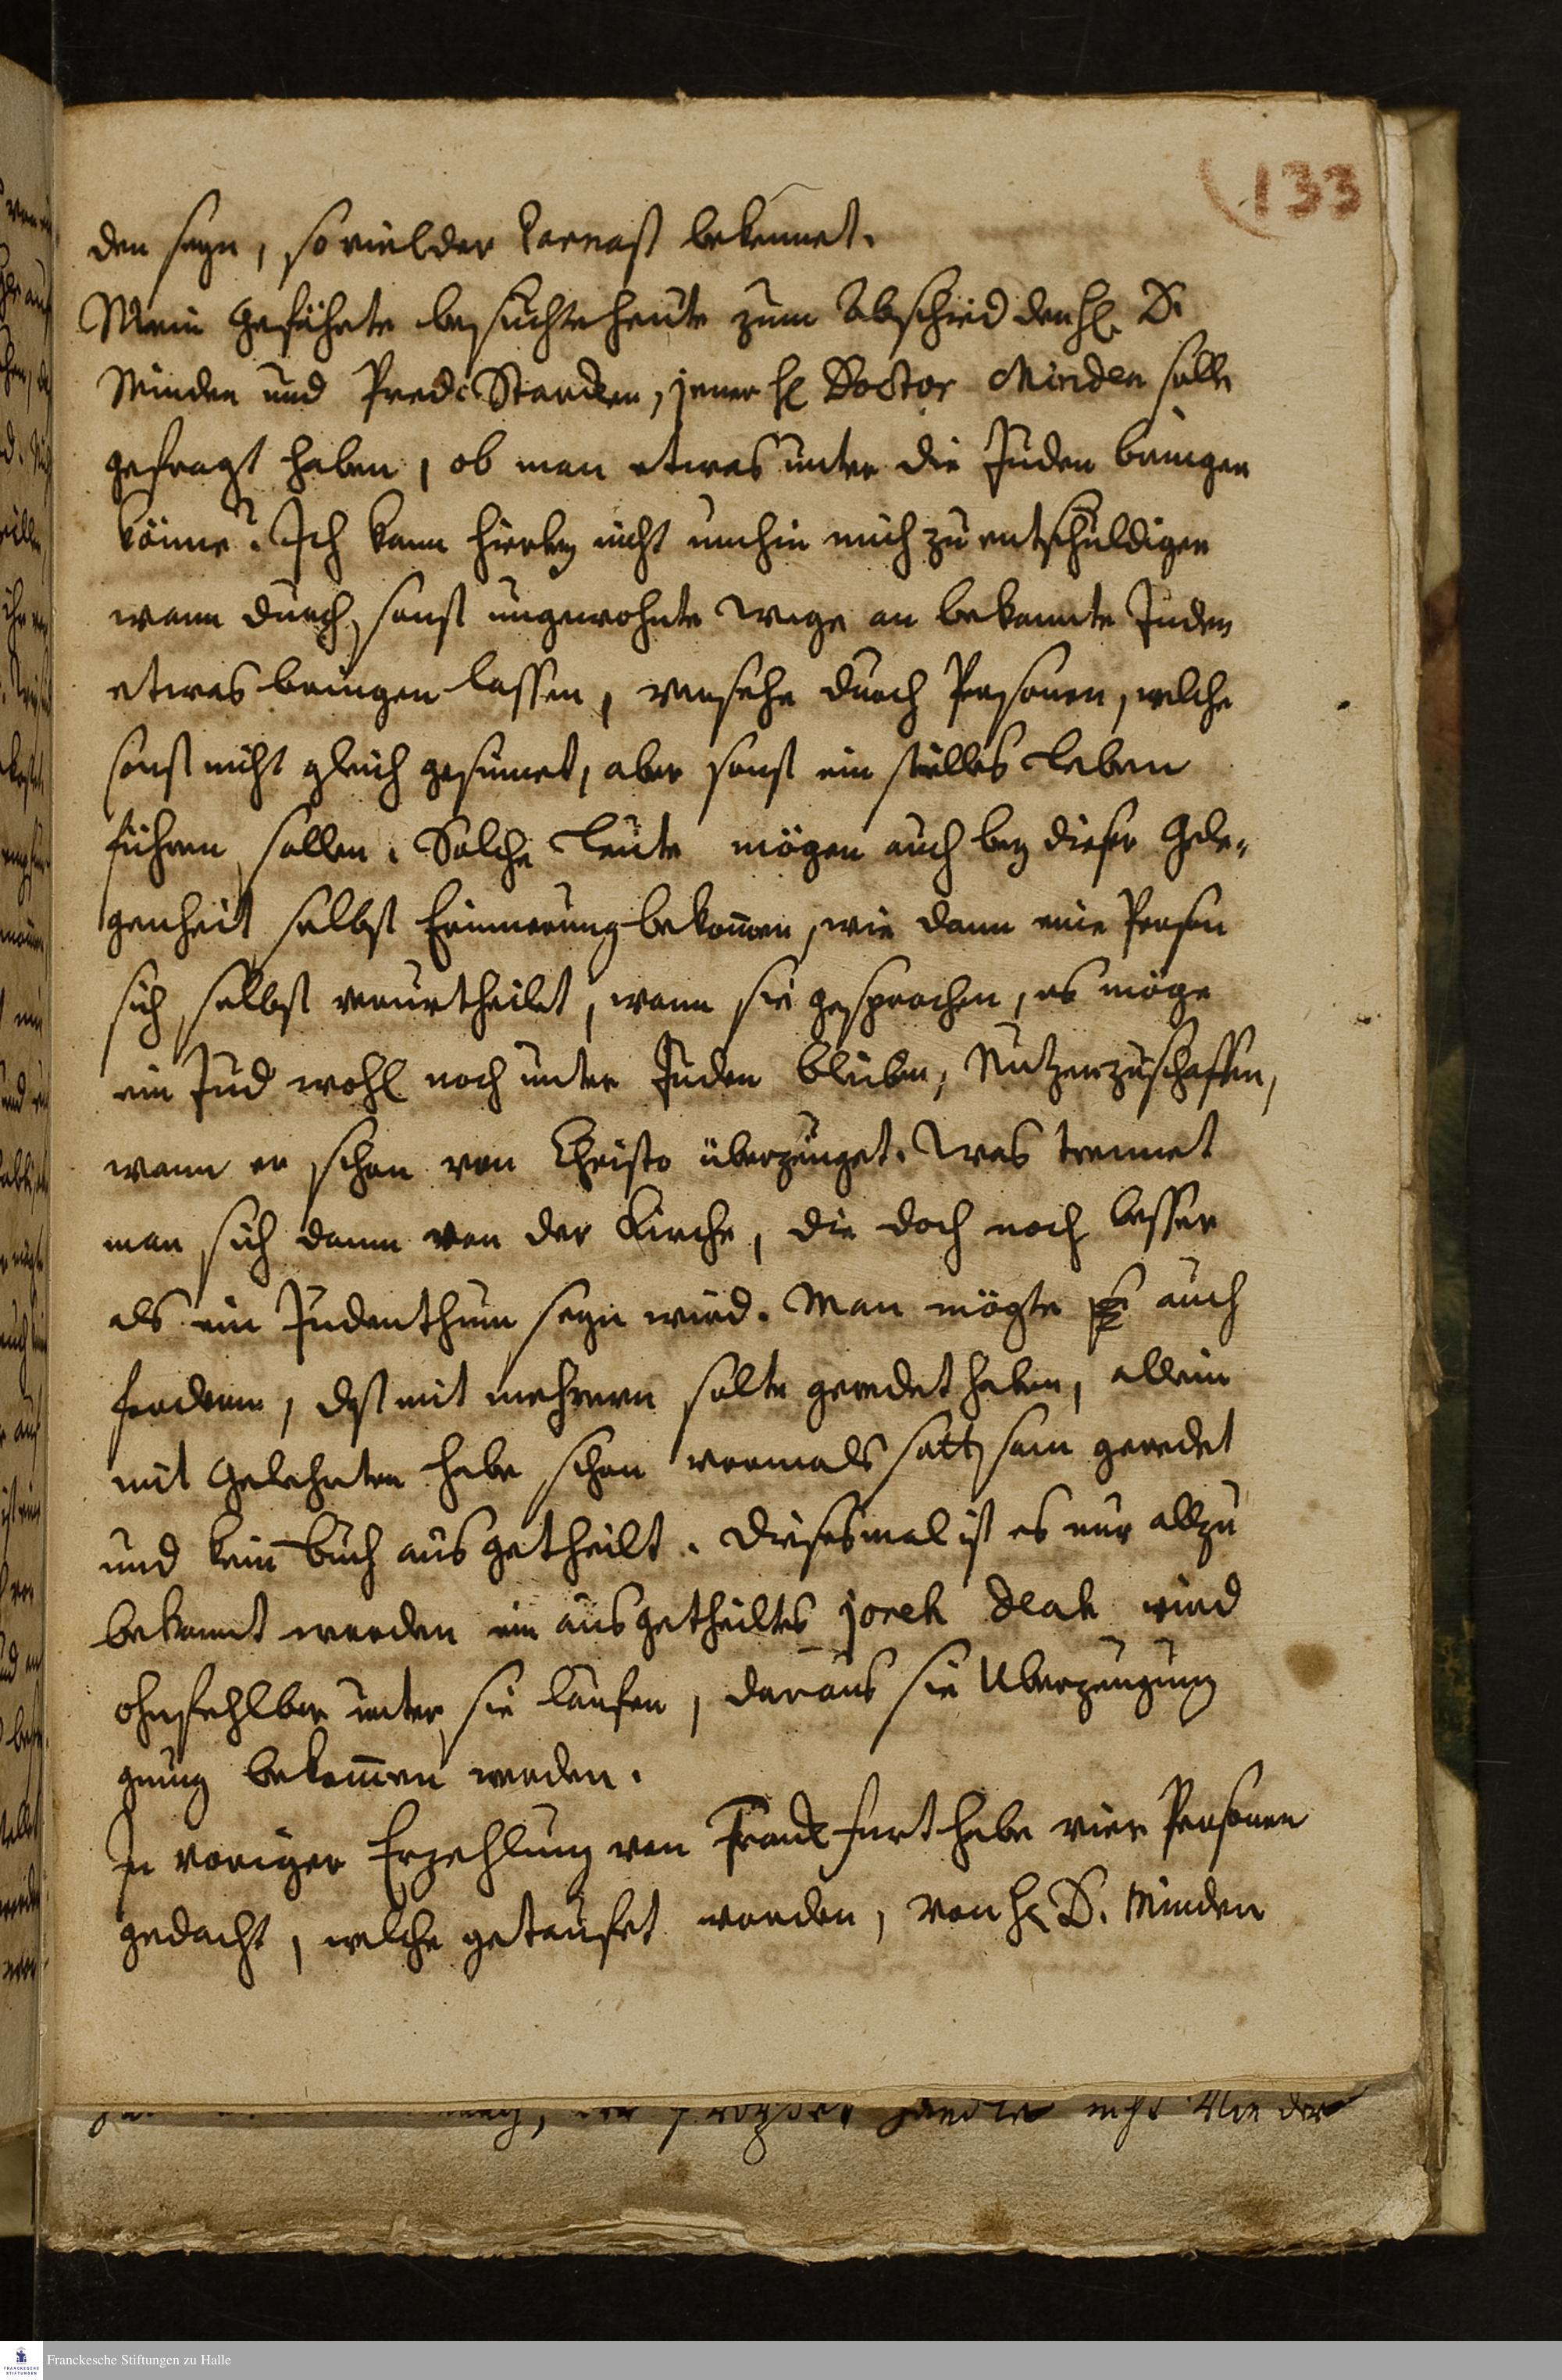 133
den seyn, so viel der Parnass bekennet.
Mein Gefährte besuchte heute zum Abschied den H. D.
Minden und Pred. Starcken, jener H. Doctor Minden solle
gefragt haben, ob man etwas unter die Juden bringen
könne? Ich kann hierbey nicht umhin mich zu entschuldigen
wann durch sonst ungewohnte Wege an bekannte Juden
etwas bringen lassen, verstehe durch Personen, welche
sonst nicht gleich gesinnet, aber sonst ein stilles Leben
führen sollen. Solche Leute mögen auch bey dieser Gele-
genheit selbst Erinnerung bekommen, wie dann eine Person
sich selbst verurtheilet, wann sie gesprochen, es möge
ein Jud wohl noch unter Juden bleiben, Nutzen zuschaffen,
wann er schon von Christo überzeuget. Was trennet
man sich dann von der Kirche, die doch noch besser
als ein Judenthum seyn wird. Man mögte auch
fordern, daß mit mehrern solte geredet haben, allein
mit Gelehrten habe schon vormals sattsam geredet
und kein Buch ausgetheilt. Diesesmal ist es nur allzu
bekannt worden ein ausgetheiltes joreh deah wird
ohnfehlbar unter sie laufen, daraus sie Uberzeugung
genug bekommen werden.
In voriger Erzehlung von Franckfurt habe vier Personen
gedacht, welche getaufet worden, von H. D. Minden
nicht Wieder
Franckesche Stiftungen zu Halle